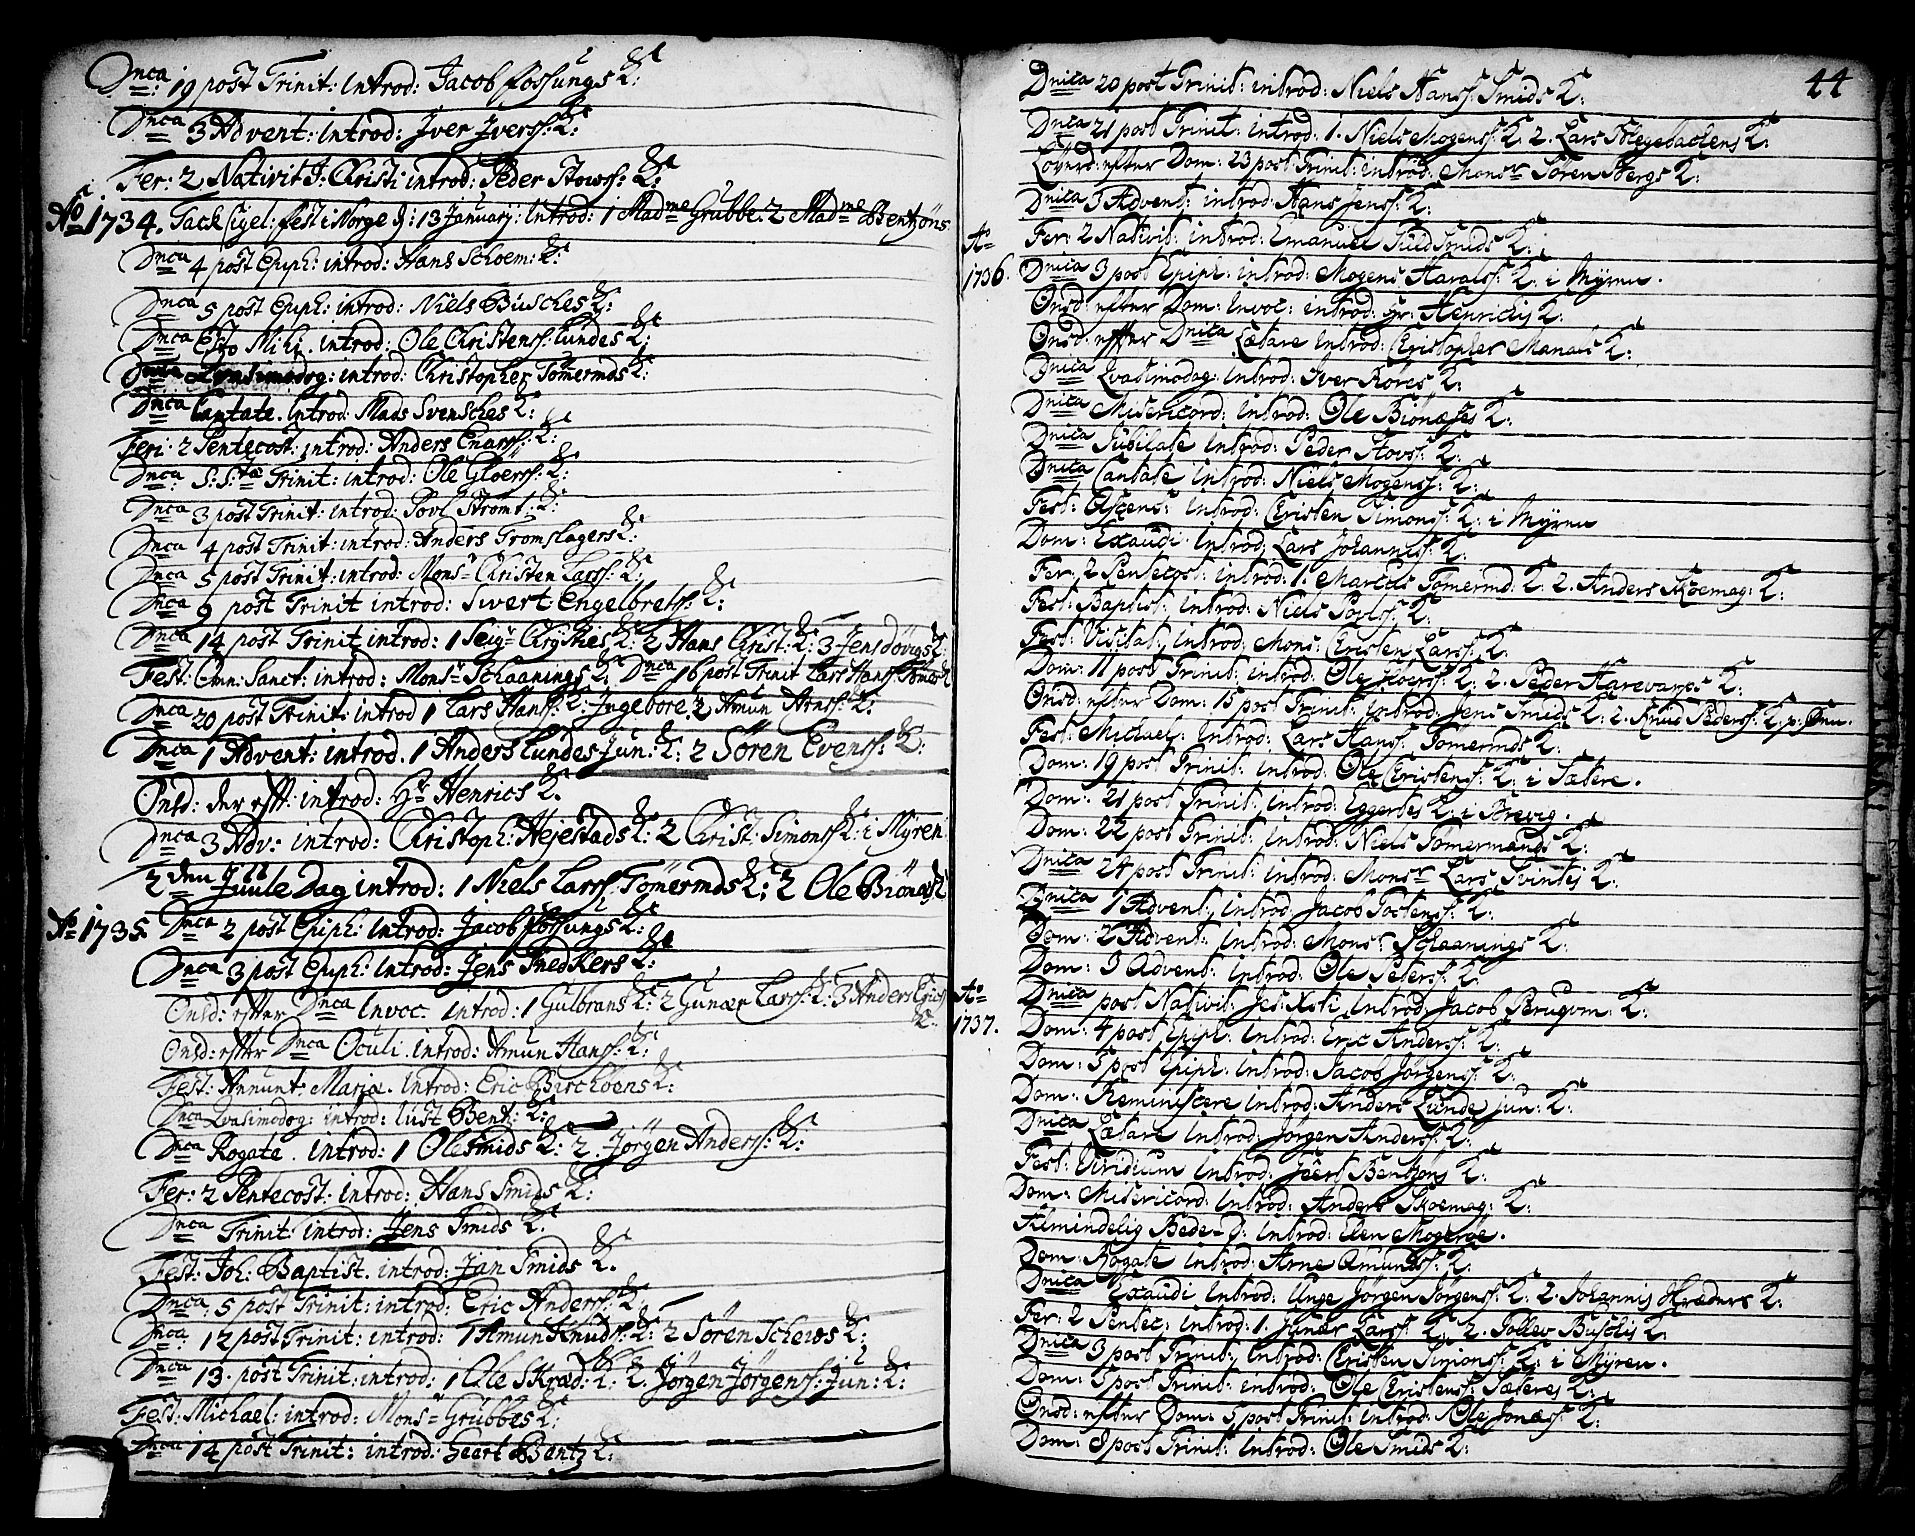 Dnca 19 post Trinit: Introd: Jacob fossungs K:
Dnca 3 Advent: Introd: Jver Jverss: K:
Fer: 2 Nativit J: Christi introd: Peder Stowss: K:
Ao 1734. Tacksigel: fest i Norge d: 13 January: Introd: 1 Madme Grubbe. 2 Madme Bentzöns
Dnca 4 post Epiph: introd: Hans Schoem: K:
Dnca 5 post Epiph: introd: Niels Busches K:
Dnca Esto Mihi. introd: Ole Christenss: Lundes K:
Dnca Qvasimodog: introd: Christopher Tömermds K:
Dnca Cantate. Introd: Mads Svensches K:
Feri: 2 Pentecost: introd: Anders Enarss: K:
Dnca S: S:tæ Trinit: introd: Ole Gloerss: K:
Dnca 3 post Trinit: introd: Povl Stromt: K:
Dnca 4 post Trinit: introd: Anders Tromslagers K:
Dnca 5 post Trinit: introd: Monsr Christen Larss: K:
Dnca 9 post Trinit introd: Siwert Engelbretss: K:
Dnca 14 post Trinit introd: 1 Seigr Chrysties K: 2 Hans Christ: K: 3 Jens dövigs K:
Fest: Omn: Sanct: introd: Monsr Schaanings K: Dnca 16 post Trinit Lars Hanss Tömmds K
Dnca 20 post Trinit: introd 1 Lars Hanss: K: Jngebore. 2 Amun Arnss: K:
Dnca 1 Advent: introd. 1 Anders Lundes Jun: K: 2 Sören Evenss: K:
Onsd: der efft: introd: Hr Henrics K.
Dnca 3 Adv: introd: Christoph: Hejestads K: 2 Christ: Simonss K: i Myren
2den Juule Dag introd: 1 Niels Larss: Tömermds K: 2 Ole Biönæs K
Ao 1735. Dnca 2 post Epiph: Introd: Jacob fossungs K:
Dnca 3 post Epiph: Introd: Jens Snedkers K:
Onsd: efter Dnca Invoc. introd: 1 Gulbrans K: 2 Gunær Larss: K: 3 Anders Erics
K:
Onsd: efter Dnca Oculi. introd: Amun Hanss: K:
Fest: Annunt: Mariæ. Introd: Eric Birchoens K:
Dnca Qvasimodog: introd: Lust Bent: K:
Dnca Rogate. Introd: 1 Ole Smids K: 2. Jörgen Anderss: K:
Fer: 2 Pentecost: introd: Hans Smids K:
Dnca Trinit: introd: Jens Smids K:
Fest: Joh: Baptist. introd: Jan Smids K.
Dnca 5 post Trinit: introd: Eric Anderss: K:
Dnca 12 post Trinit: introd: 1 Amun Knudss: K: 2 Sören Schewes K:
Dnca 13. post Trinit: introd: 1 Ole Skræd: K: 2. Jörgen Jörgenss: Jun: K:
Fest: Michael: introd: Monsr Grubbes K:
Dnca 14 post Trinit: introd: Geert Bentz K:
44
Dnica 20 post Trinit: introd: Niels Hanss: Smids K:
Dnica 21 post Trinit: introd: 1. Niels Mogenss: K. 2. Lars Klegebachens K:
Löverd: efter Dom: 23 post Trinit: introd: Monsr Sören Bergs K:
Dnica 3 Advent: introd: Hans Jenss: K:
Fer: 2 Nativit: introd: Emanuel Tuldsmids K:
Ao
1736. Dnica 3 post Epiph: introd: Mogens Haralss: K: i Myren.
Onsd: efter Dom: Invoc: introd: Hr: Henrichs K:
Onsd: efter Dnica Lætare Introd: Christopher Manaus K:
Dnica Qvasimodog: Introd: Iver Röres K:
Dnica Misericord: Introd: Ole Bionæses K:
Dnica Jubilate introd: Peder Stovs: K:
Dnica Cantate introd: Niels Mogenss: K:
Fest: Ascens: Introd: Christen Simonss: K: i Myren
Dom: Exaudi Introd: Lars Johanness: K:
Fer: 2 Pentecost: Introd: 1. Martess Tömermd: K. 2. Anders Skoemag: K:
Fest: Baptist: introd: Niels Povlss: K:
Fest: Visitat: introd: Mons: Christen Larss: K:
Dom: 11 post Trinit: introd: Ole Gloerss: K. 2. Peder Harevargs K:
Onsd: efter Dom: 15 post Trinit: introd: Jens Smids K: 2. Knud Pederss: K. p: Önn.
Fest: Michael: introd: Lars Hanss: Tömermds K:
Dom: 19 post Trinit: introd: Ole Christenss: K: i Sætere.
Dom: 21 post Trinit: introd: Eggertes K: i Brevig.
Dom: 22 post Trinit: introd: Niels Tömermands K:
Dnica 24 post Trinit: introd: Monsr Lars Svintes K:
Dnica 1 Advent: introd: Jacob Tostenss: K:
Dom: 2 Advent: introd: Monsr Schaanings K:
Dom: 3 Advent: introd: Ole Peterss: K:
Ao
1737. Dnica post Nativit: Jes: Xsti, Introd: Jacob Berugom: K:
Dom: 4 post Epiph: introd: Eric Anderss: K:
Dom: 5 post Epiph: introd: Jacob Jörgenss: K:
Dom: Reminiscere introd: Anders Lunde jun: K:
Dnica Lætare introd: Jörgen Anderss: K:
Fest: Viridium introd: Geert Bentzöns K:
Dom: Misericord: introd: Anders Skoemag: K:
Almindelig Bede-D: introd: Elen Mogeröe.
Dom: Rogate introd: Arne Amundss: K:
Dnica Exaudi introd: Unge Jörgen Jörgenss: K. 2. Johannis Skræders K:
Fer: 2 Pentec: introd: 1. Gunær Larss: K. 2. Tollev Buschs K:
Dnica 3 post Trinit: introd: Christen Simonss: K: i Myren.
Dom: 5 post Trinit: introd: Ole Christenss: Sæteres K:
Onsd: efter Dom: 5 post Trinit: introd: Ole Jonæss: K:
Dom: 8 post Trinit: Introd: Ole Smids K: